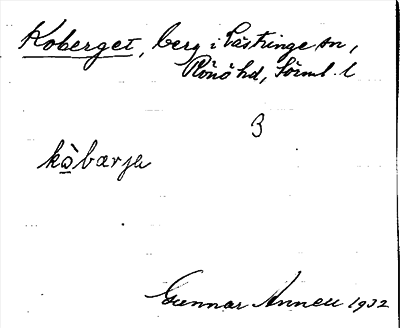 Koberget, berg i Västringe sn,
Rönö hd, Sörml. l
3
kò̱bærjə
Gunnar Annell 1932